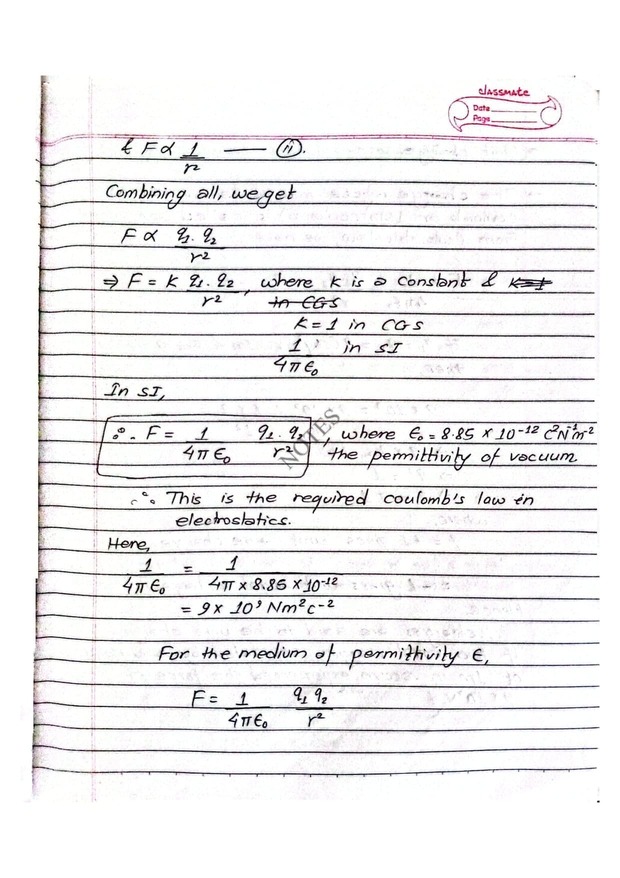 classmate
Date
Page
& F ∝ 1/r² —— (ii).
Combining all, we get
F ∝ q1. q2 / r²
⇒ F = K q1. q2 / r², where K is a constant & K=1
in CGS
K=1 in CGS
1/4πϵ₀ in SI
In SI,
∴ F = 1/4πϵ₀ q1. q2 / r², where ϵ₀ = 8.85 × 10⁻¹² C²N⁻¹m⁻²
the permittivity of vacuum
NOTES
∴ This is the required coulomb's law in
electrostatics.
Here,
1/4πϵ₀ = 1/4π × 8.85 × 10⁻¹²
= 9 × 10⁹ Nm²c⁻²
For the medium of permittivity ϵ,
F = 1/4πϵ₀ q1 q2 / r²